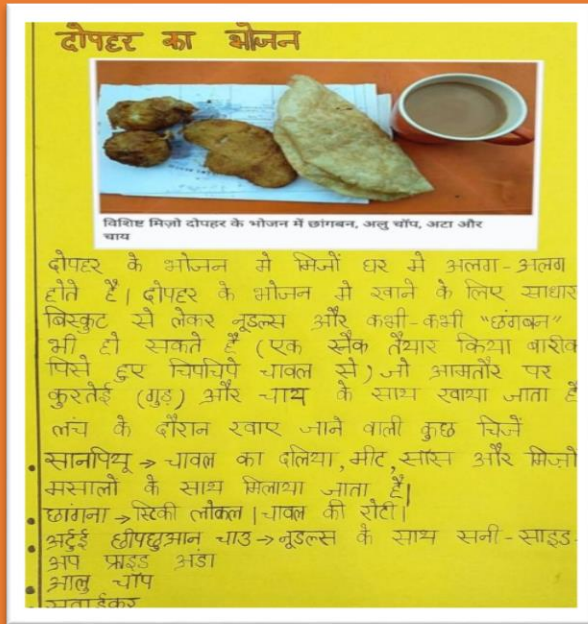 दोपहर का भोजन
विशिष्ट मिज़ो दोपहर के भोजन में छांगबन, अलु चॉप, अटा और
चाय
दोपहर के भोजन मे मिजों घर मे अलग-अलग
होते हैं। दोपहर के भोजन मे खाने के लिए साधार
बिस्कुट से लेकर नूडल्स और कभी-कभी "छंगबन"
भी हो सकते हैं (एक स्नैक तैयार किया बारीक
पिसे हुए चिपचिपे चावल से) जो आमतौर पर
कुरतेई (गुड़) और चाय के साथ खाया जाता है
लंच के दौरान खाए जाने वाली कुछ चिजें
• सानपियू → चावल का दलिया, मीट, सॉस और मिजो
मसालो के साथ मिलाया जाता है।
• छांगना → स्टिकी लोकल। चावल की रोटी।
• अर्टुई छीपछुआन चाउ → नूडल्स के साथ सनी-साइड-
अप फ्राइड अंडा
• आलु चॉप
•